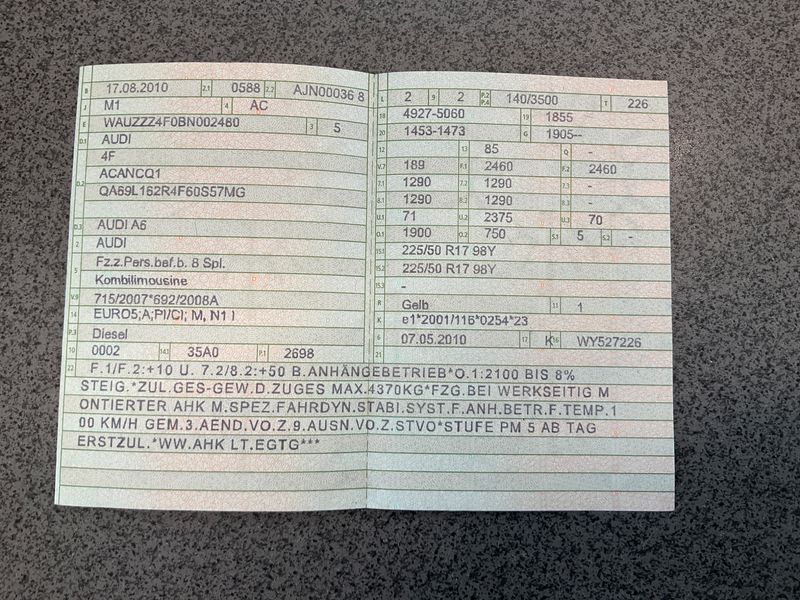 B 17.08.2010 2.1 0588 2.2 AJN00036 8
J M1 4 AC
E WAUZZZ4F0BN002480 3 5
D.1 AUDI
4F
D.2 ACANCQ1
QA69L162R4F60S57MG
D.3 AUDI A6
2 AUDI
5 Fz.z.Pers.bef.b. 8 Spl.
Kombilimousine
V.9 715/2007*692/2008A
14 EURO5;A;PI/CI; M, N1 I
P.3 Diesel
10 0002 14.1 35A0 P.1 2698
L 2 9 2 P.2 P.4 140/3500 T 226
18 4927-5060 19 1855
20 1453-1473 G 1905--
12 13 85 Q -
V.7 189 F.1 2460 F.2 2460
7.1 1290 7.2 1290 7.3 -
8.1 1290 8.2 1290 8.3 -
U.1 71 U.2 2375 U.3 70
O.1 1900 O.2 750 S.1 5 S.2 -
15.1 225/50 R17 98Y
15.2 225/50 R17 98Y
15.3 -
R Gelb 11 1
K e1*2001/116*0254*23
6 07.05.2010 17 K 16 WY527226
21
22 F.1/F.2:+10 U. 7.2/8.2:+50 B.ANHÄNGEBETRIEB*O.1:2100 BIS 8%
STEIG.*ZUL.GES-GEW.D.ZUGES MAX.4370KG*FZG.BEI WERKSEITIG M
ONTIERTER AHK M.SPEZ.FAHRDYN.STABI.SYST.F.ANH.BETR.F.TEMP.1
00 KM/H GEM.3.AEND.VO.Z.9.AUSN.VO.Z.STVO*STUFE PM 5 AB TAG
ERSTZUL.*WW.AHK LT.EGTG***